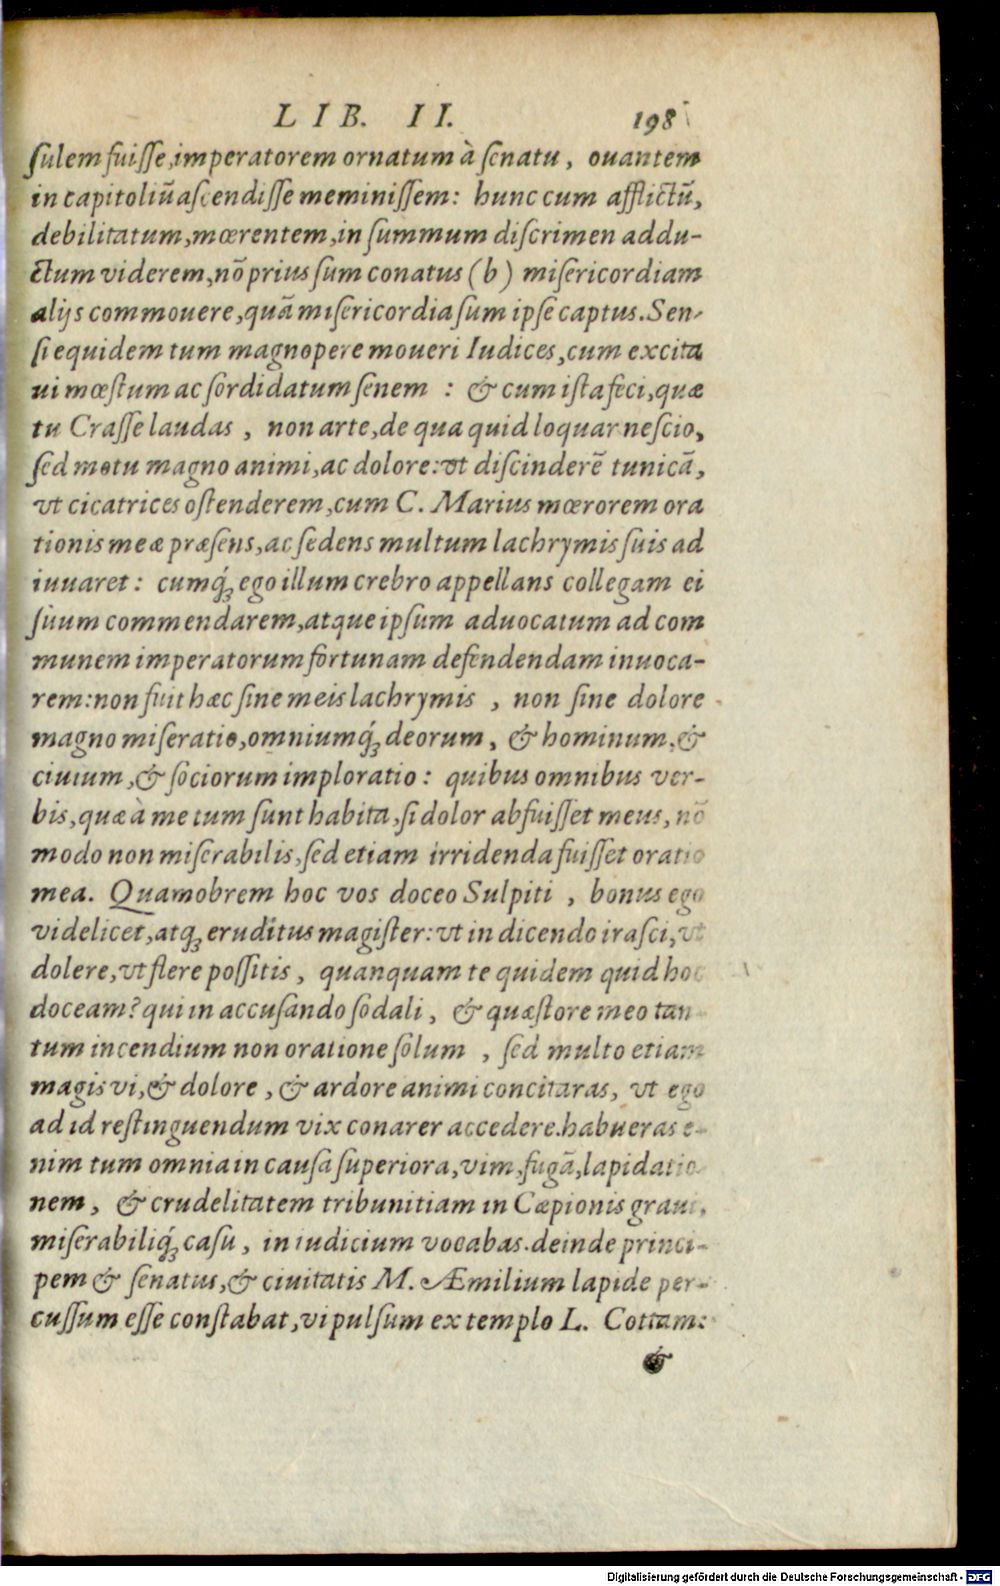 LIB. II. 198
ſulem fuiſſe, imperatorem ornatum à ſenatu, ouantem
in capitoliũ aſcendiſſe meminiſſem: hunc cum afflictũ,
debilitatum, mœrentem, in ſummum diſcrimen addu-
ctum viderem, nõ prius ſum conatus (b) miſericordiam
alijs commouere, quã miſericordia ſum ipſe captus. Sen-
ſi equidem tum magnopere moueri Iudices, cum excita
ui mœſtum ac ſordidatum ſenem : & cum iſta feci, quæ
tu Craſſe laudas , non arte, de qua quid loquar neſcio,
ſed motu magno animi, ac dolore: vt diſcinderẽ tunicã,
vt cicatrices oſtenderem, cum C. Marius mœrorem ora
tionis meæ præſens, ac ſedens multum lachrymis ſuis ad
iuuaret : cumq́; ego illum crebro appellans collegam ei
ſuum commendarem, atque ipſum aduocatum ad com
munem imperatorum fortunam defendendam inuoca-
rem: non fuit hæc ſine meis lachrymis , non ſine dolore
magno miſeratio, omniumq́; deorum, & hominum, &
ciuium, & ſociorum imploratio : quibus omnibus ver-
bis, quæ à me tum ſunt habita, ſi dolor abfuiſſet meus, nõ
modo non miſerabilis, ſed etiam irridenda fuiſſet oratio
mea. Quamobrem hoc vos doceo Sulpiti , bonus ego
videlicet, atq; eruditus magiſter: vt in dicendo iraſci, vt
dolere, vt flere poſſitis , quanquam te quidem quid hoc
doceam? qui in accuſando ſodali, & quæſtore meo tan-
tum incendium non oratione ſolum , ſed multo etiam
magis vi, & dolore , & ardore animi concitaras, vt ego
ad id reſtinguendum vix conarer accedere. habueras e-
nim tum omnia in cauſa ſuperiora, vim, fugã, lapidatio
nem, & crudelitatem tribunitiam in Cæpionis graui,
miſerabiliq́; caſu, in iudicium vocabas. deinde princi-
pem & ſenatus, & ciuitatis M. Æmilium lapide per-
cuſſum eſſe conſtabat, vi pulſum ex templo L. Cottam:
&
Digitalisierung gefördert durch die Deutsche Forschungsgemeinschaft - DFG